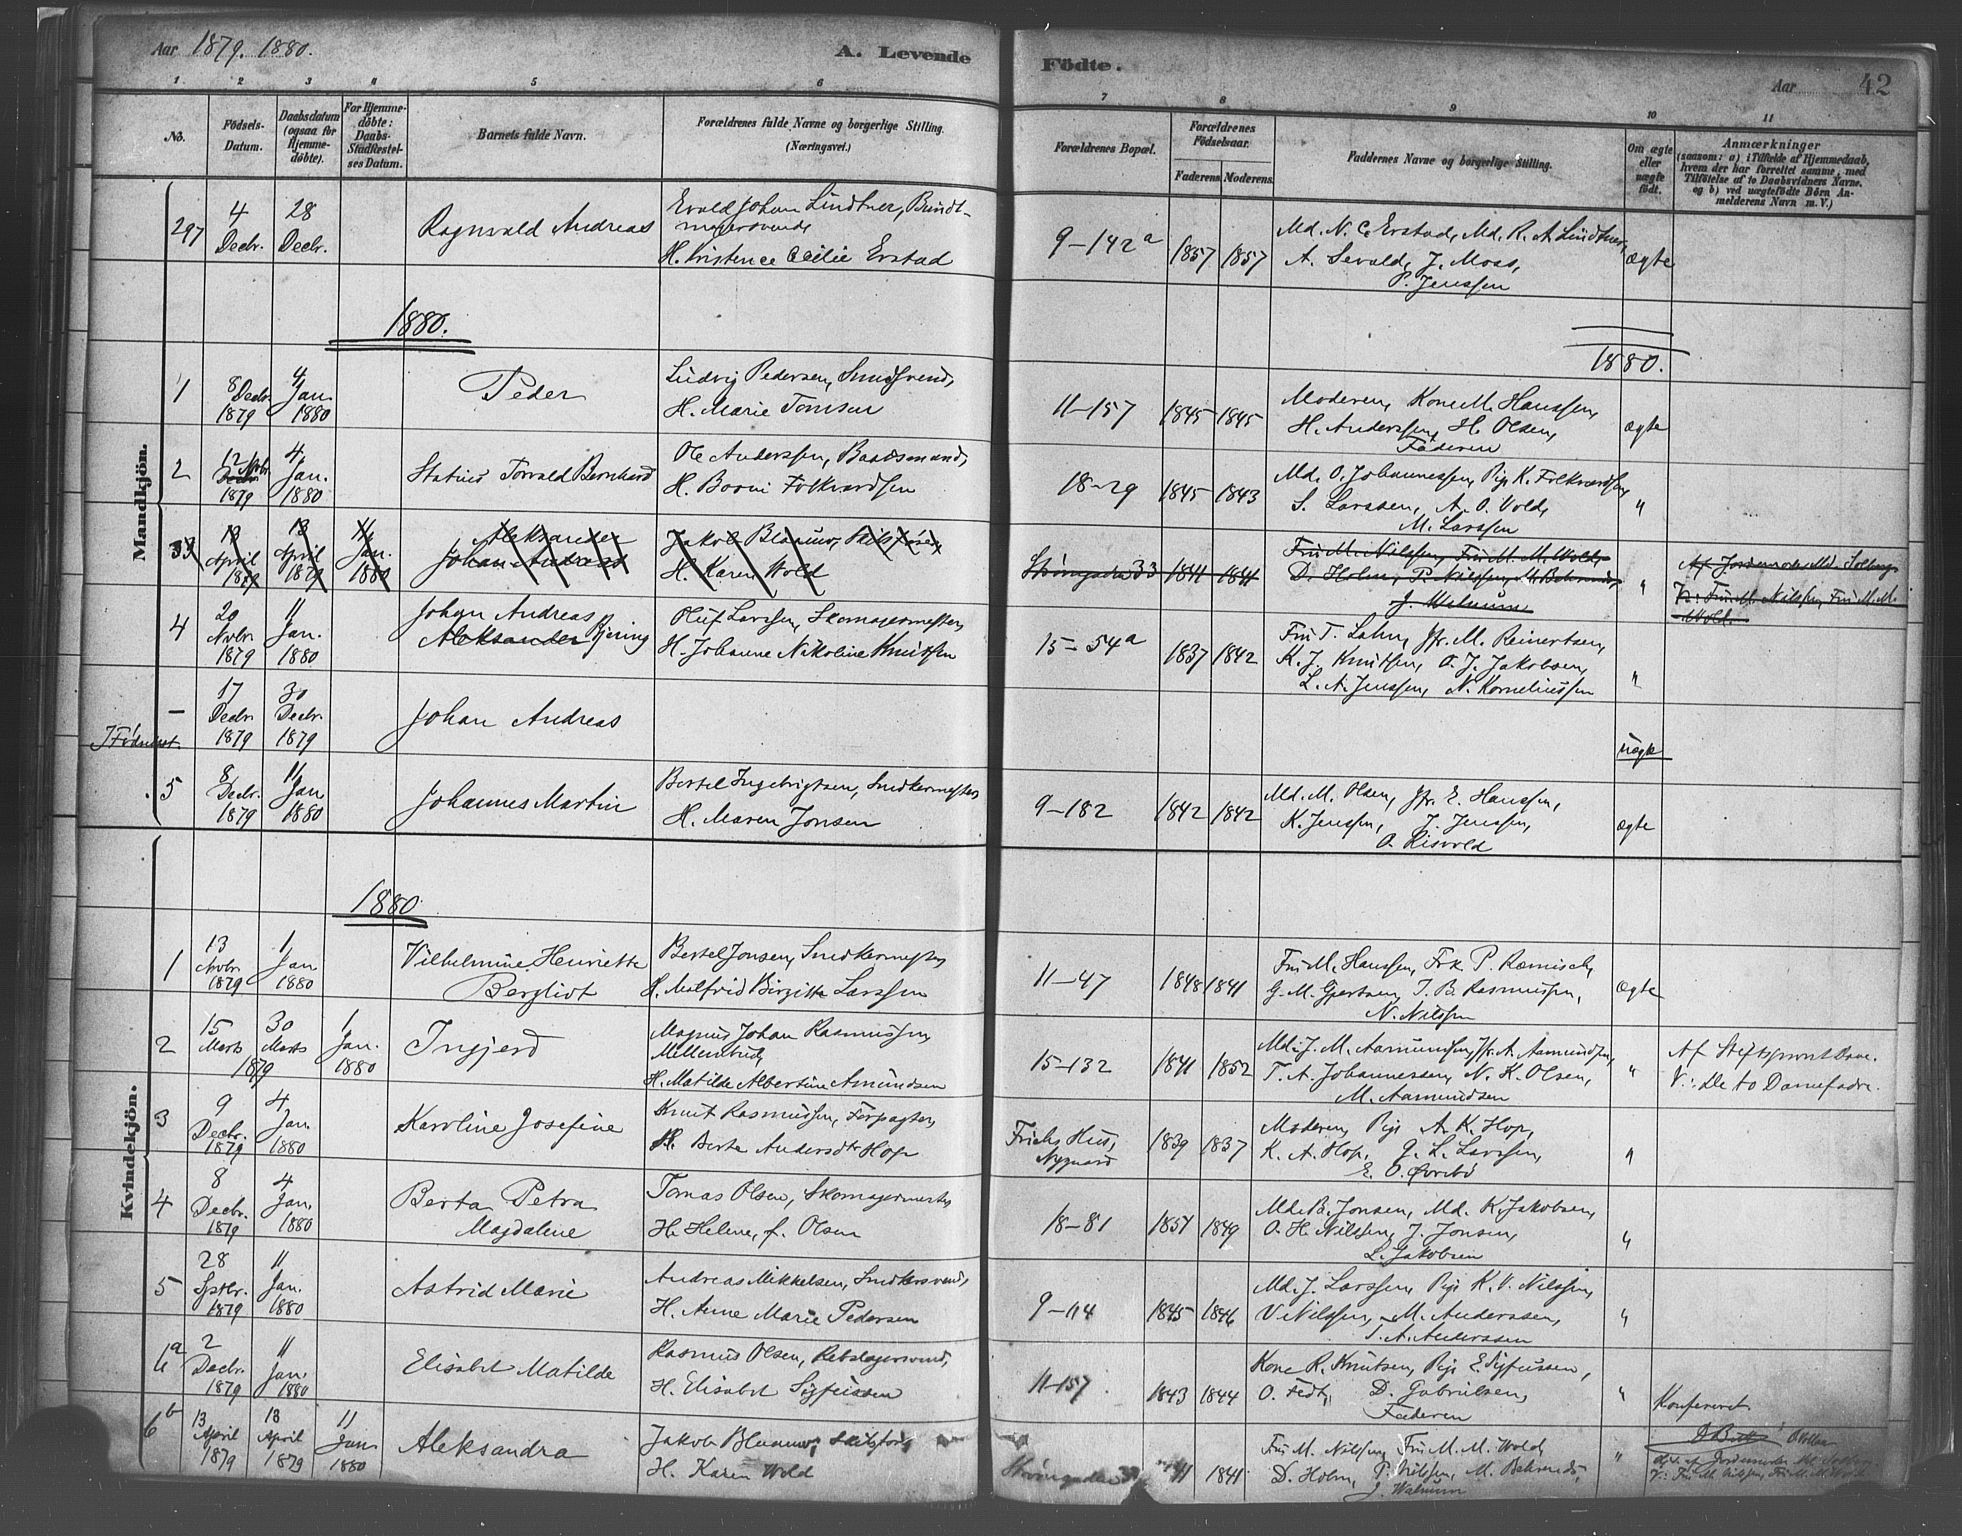 Aar 1879. 1880.
A. Levende
Födte.
Aar
42
1 2 3 4 5 6 7 8 9 10 11
No.
Fødsels-Datum.
Daabsdatum (ogsaa for Hjemme-døbte).
For Hjemme-døbte: Daabs-Stadfæstelses Datum.
Barnets fulde Navn.
Forældrenes fulde Navne og borgerlige Stilling. (Næringsvei.)
Forældrenes Bopæl.
Forældrenes Fødselsaar.
Faderens. Moderens.
Faddernes Navne og borgerlige Stilling.
Om ægte eller uægte født.
Anmærkninger
(saasom: a) i Tilfælde af Hjemmedaab, hvem der har forrettet samme, med Tilføielse af to Daabsvidners Navne. og b) ved uægtefødte Börn Anmelderens Navn m. V.)
Mandkjön.
297
4 Decbr.
28 Decbr.
Ragnvald Andreas
Evald Johan Lindtner, Bundt-
magersvend,
H. Kristence Cecilie Erstad
9-142a
1857 1857
Md. N. C. Erstad, Md. R. A. Lindtner,
A. Sevald, J. Moss,
P. Jenssen
ægte
1880.
1880.
1
8 Decbr. 1879
4 Jan. 1880
Peder
Ludvig Pedersen, Smedsvend,
H. Marie Tomsen
11-157
1845 1845
Moderen, Kone M. Hanssen,
H. Anderssen, H. Olsen,
Faderen
ægte
2
12 Novbr. 1879
4 Jan. 1880
Statius Torvald Bernhard
Ole Anderssen, Baadsmand,
H. Booni Folkvardsen
18-29
1845 1843
Md. O. Johannessen, Pige K. Folkvardsen,
S. Larssen, A. O. Vold,
M. Larssen
"
33
13 April 1879
13 April 1879
11 Jan. 1880
Aleksander
Johan Andreas
Jakob Blaauw,
H. Karen Wold
Strangeden 33
1841 1841
Fru M. Nilssen, Fru M. M. Wold,
D. Holm, P. Nilssen, M. Behrends,
J. Walnum
"
Af Jordemoder Md. Solberg
V.: Fru M. Nilssen, Fru M. M.
Wold.
4
20 Novbr. 1879
11 Jan. 1880
Johan Andreas
Aleksander Bjering
Oluf Larssen, Skomagermester,
H. Johanne Nikoline Knutsen
15-54a
1837 1842
Fru T. Lahn, Jfr. M. Reinertsen,
K. J. Knutsen, O. J. Jakobsen,
L. A. Jenssen, N. Korneliussen
"
-
J Fødselsst.
17 Decbr. 1879
30 Decbr. 1879
Johan Andreas
uægte
5
8 Decbr. 1879
11 Jan 1880
Johannes Martin
Bertel Ingebrigtsen, Snedkermester,
H. Maren Jonsen
9-182
1842 1842
Md. M. Olsen, Jfr. E. Hanssen,
K. Jenssen, J. Jenssen,
O. Risvold
ægte
1880
Kvindekjön.
1
13 Novbr. 1879
1 Jan 1880
Vilhelmine Henriette
Bergliot
Bertel Jonsen, Snedkermester,
H. Malfrid Birgitte Larssen
11-47
1848 1841
Fru M. Hanssen, Frk. P. Ræmisch,
G. M. Gjertsen, J. B. Rasmussen,
N. Nilssen
ægte
2
15 Marts 30 Marts 1879
1 Jan. 1880
Ingjerd
Magnus Johan Rasmussen,
Mellembud,
H. Matilde Albertine Amundsen
15-132
1841 1852
Md. J. M. Aamundsen, Jfr. A. Aamundsen,
T. A. Johannessen, N. K. Olsen,
M. Aamundsen
"
Af Stiftsprovst Dave.
V.: De to Damefadre.
3
9 Decbr. 1879
4 Jan. 1880
Karoline Josefine
Knut Rasmussen, Forpagter,
H. Berte Andersdtr Hop
Frichs Hus,
Nygaard
1839 1837
Moderen, Pige A. K. Hop,
K. A. Hop, G. L. Larssen,
E. O. Øvrebø
"
4
8 Decbr. 1879
4 Jan. 1880
Berta Petra
Magdalene
Tomas Olsen, Skomagermester,
H. Helene, f. Olsen
18-81
1851 1849
Md. B. Jonsen, Md. K. Jakobsen,
O. H. Nilssen, J. Jonsen,
L. Jakobsen
"
5
28 Sptbr. 1879
11 Jan. 1880
Astrid Marie
Andreas Mikkelsen, Snedkersvend,
H. Anne Marie Pedersen
9-114
1845 1846
Md. J. Larssen, Pige K. V. Nilssen,
V. Nilssen, M. Anderssen,
T. A. Anderssen
"
6a
2 Decbr. 1879
11 Jan. 1880
Elisabet Matilde
Rasmus Olsen, Rebslagersvend,
H. Elisabet Sigfussen
11-157
1843 1844
Kone R. Knutsen, Pige E. Sigfussen,
O. Fedt, D. Gabrielsen,
Faderen
"
Konfereret
6b
13 April 1879
13 April 1879
11 Jan 1880
Aleksandra
Jakob Blaauw,
H. Karen Wold
Strangeden 33
1841
Fru M. Nilssen, Fru M. M. Wold,
D. Holm, P. Nilssen, M. Behrends,
J. Walnum
"
Hj.d. af Jordemoder Md. Solberg.
V.: Fru M. Nilssen, Fru M. M. Wold